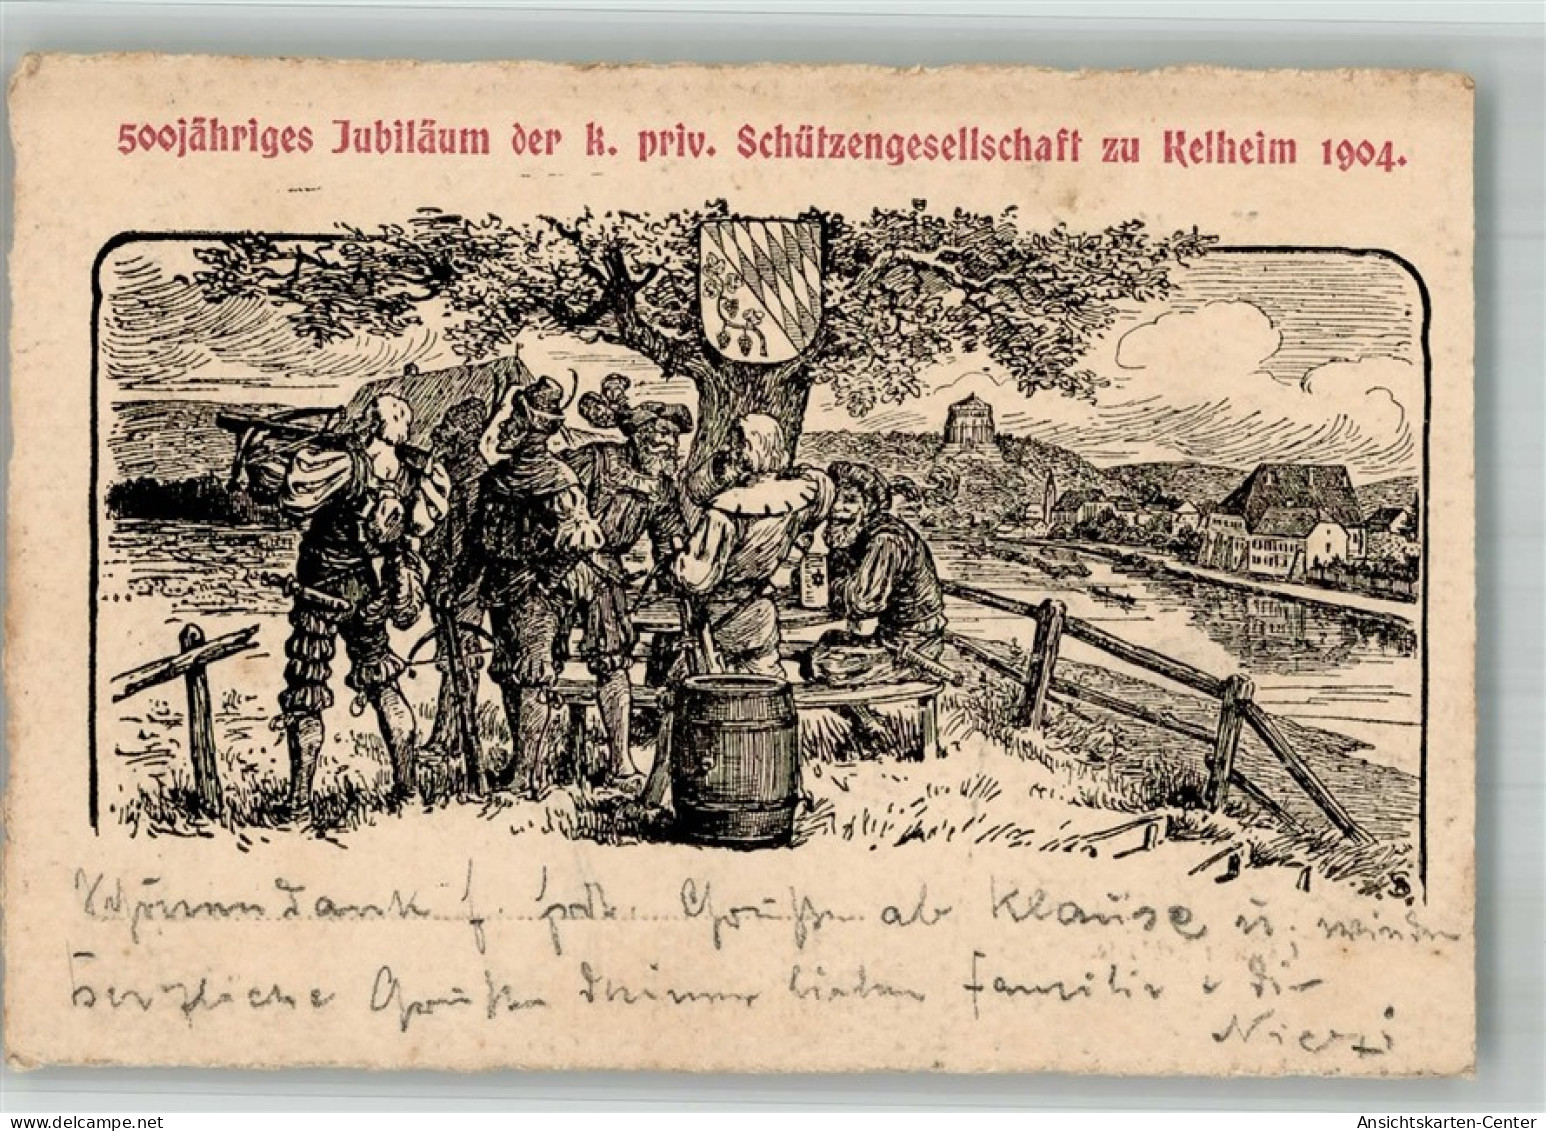 500jähriges Jubiläum der k. priv. Schützengesellschaft zu Kelheim 1904.
Schönen Dank f. Grüße ab Klause u.
herzliche Grüße deiner lieben Familie
B.
00152622
Ansichtskarten-Center